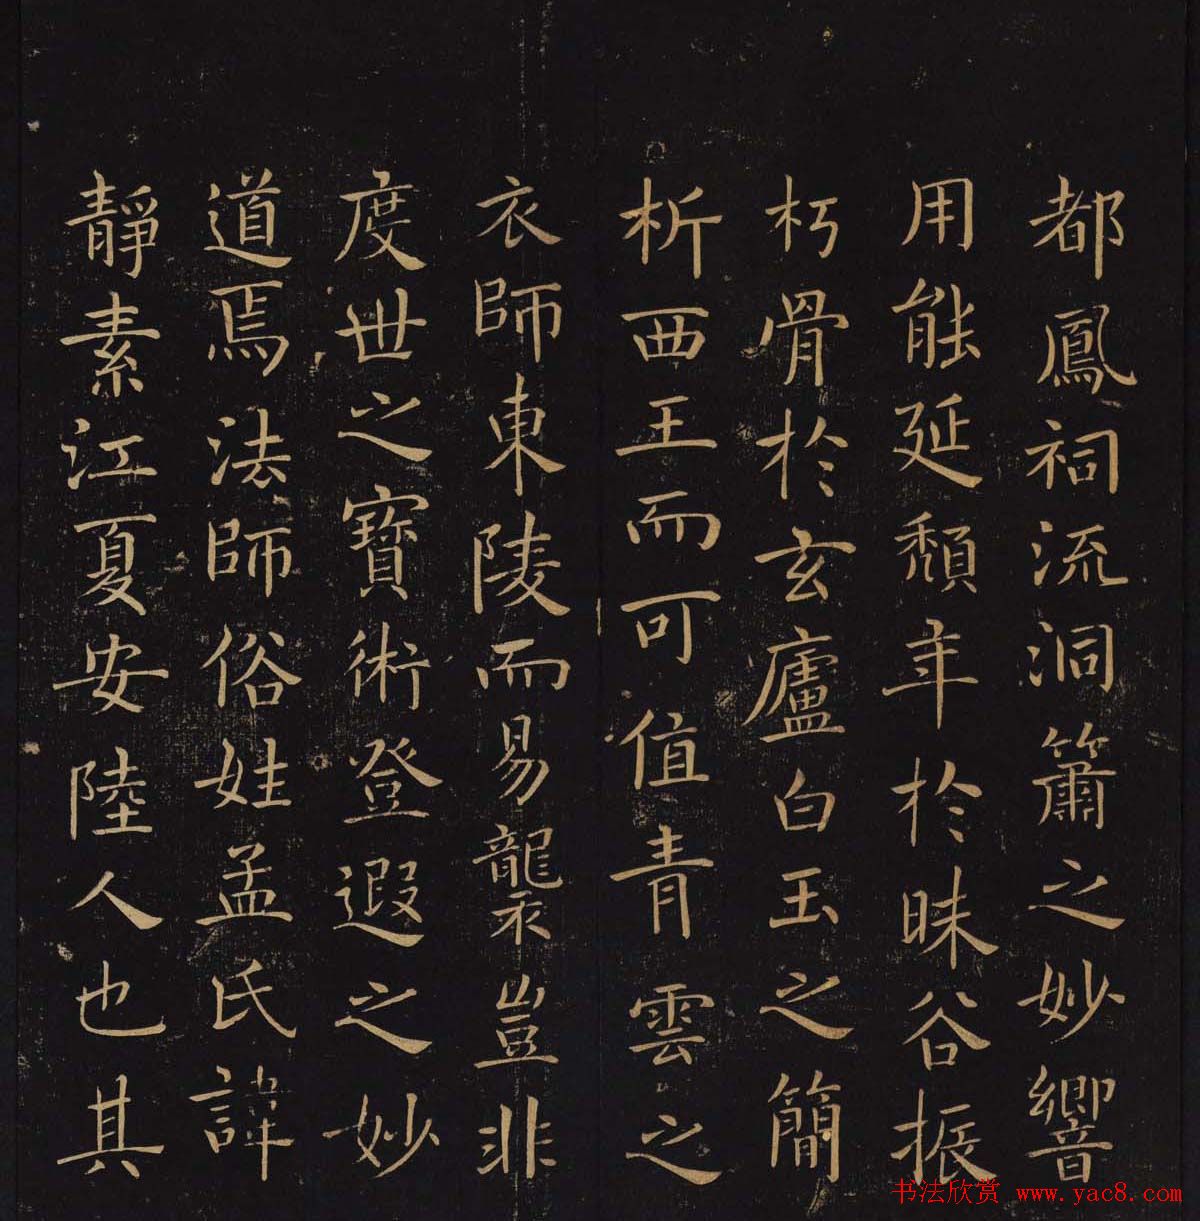 都鳳祠流洞簫之妙響
用能延頹年於昧谷振
朽骨於玄廬白玉之簡
析西王而可值青雲之
衣師東陵而易襲豈非
度世之寶術登遐之妙
道焉法師俗姓孟氏諱
靜素江夏安陸人也其
书法欣赏 www.yac8.com